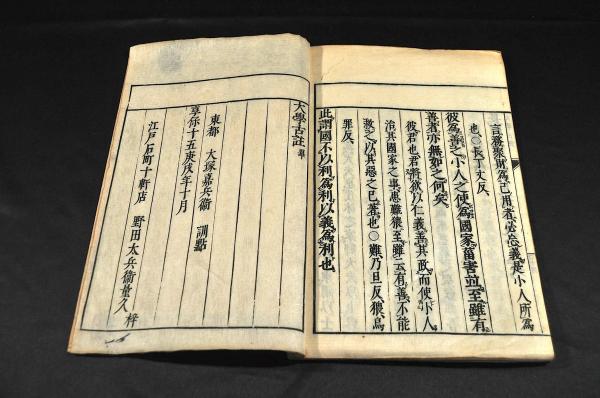 言務聚財為己用者必忘義是小人所為
也○長丁丈反
彼為善之小人之使為國家菑害並至雖有
善者亦無如之何矣
彼君也君將欲以仁義善其政而使小人
治其國家之事患難猥至雖云有善不能
救之以其惡之已著也○難乃旦反猥烏
罪反
此謂國不以利為利以義為利也
大學古註畢
東都 大塚嘉兵衞 訓點
享保十五庚戌年十月
江戸石町十軒店 野田太兵衞 久梓